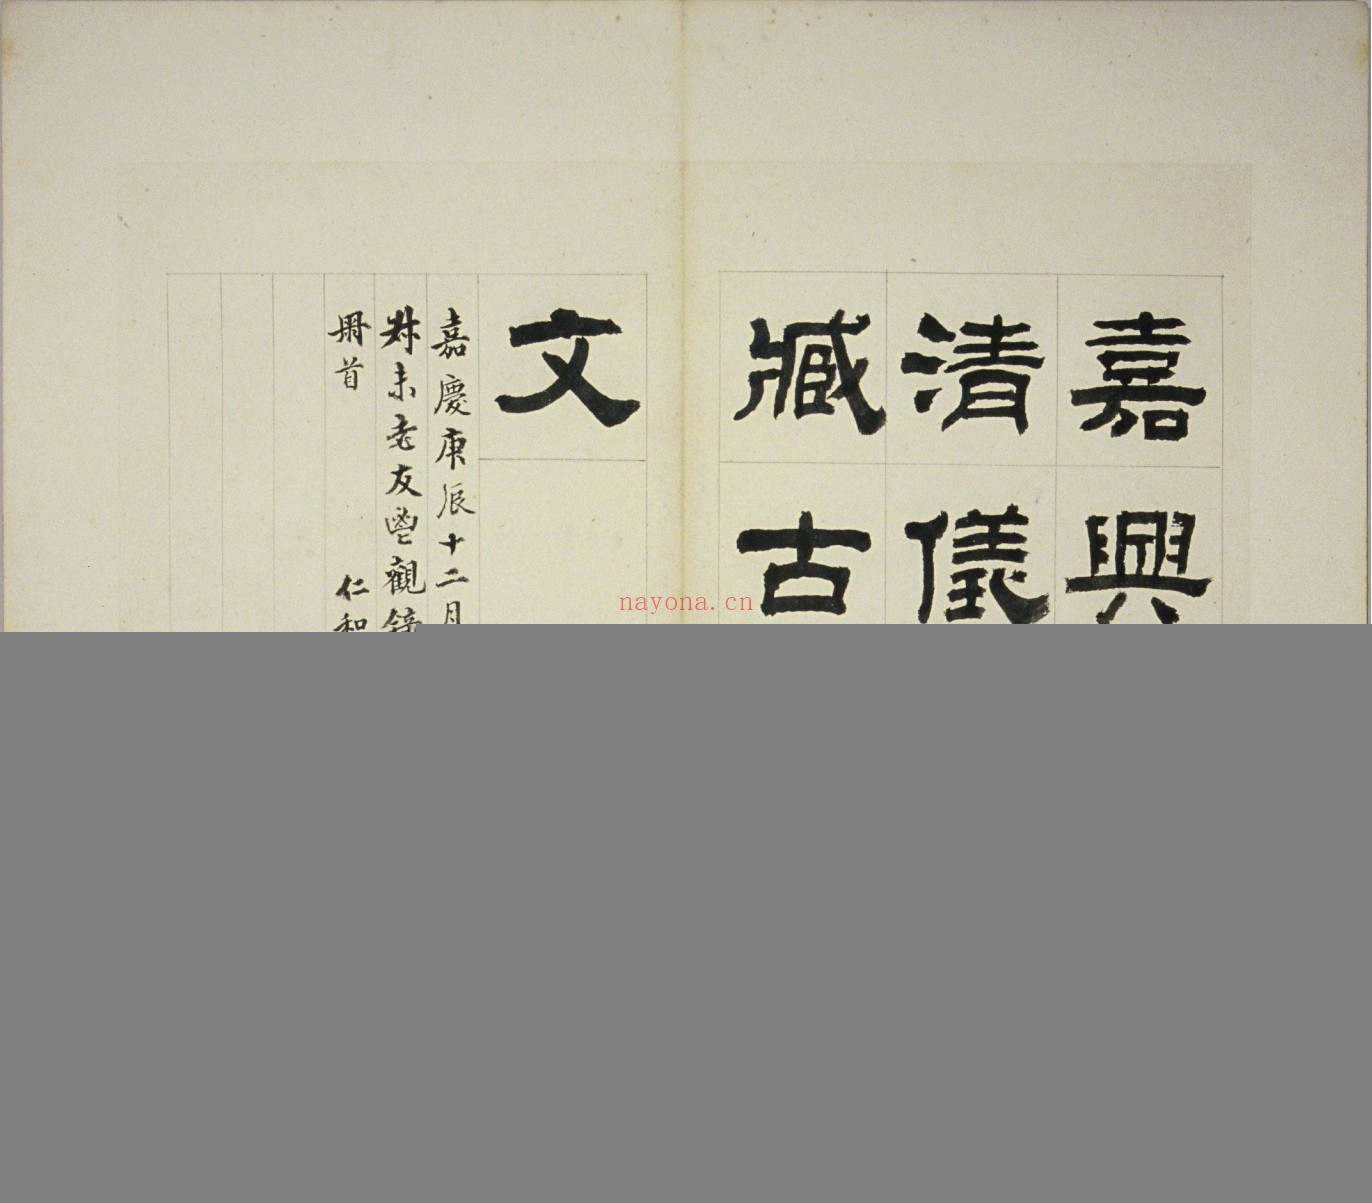 嘉興
清儀
臧古
文
嘉慶庚辰十二月
尗未老友出觀
冊首 仁和
nayona.cn